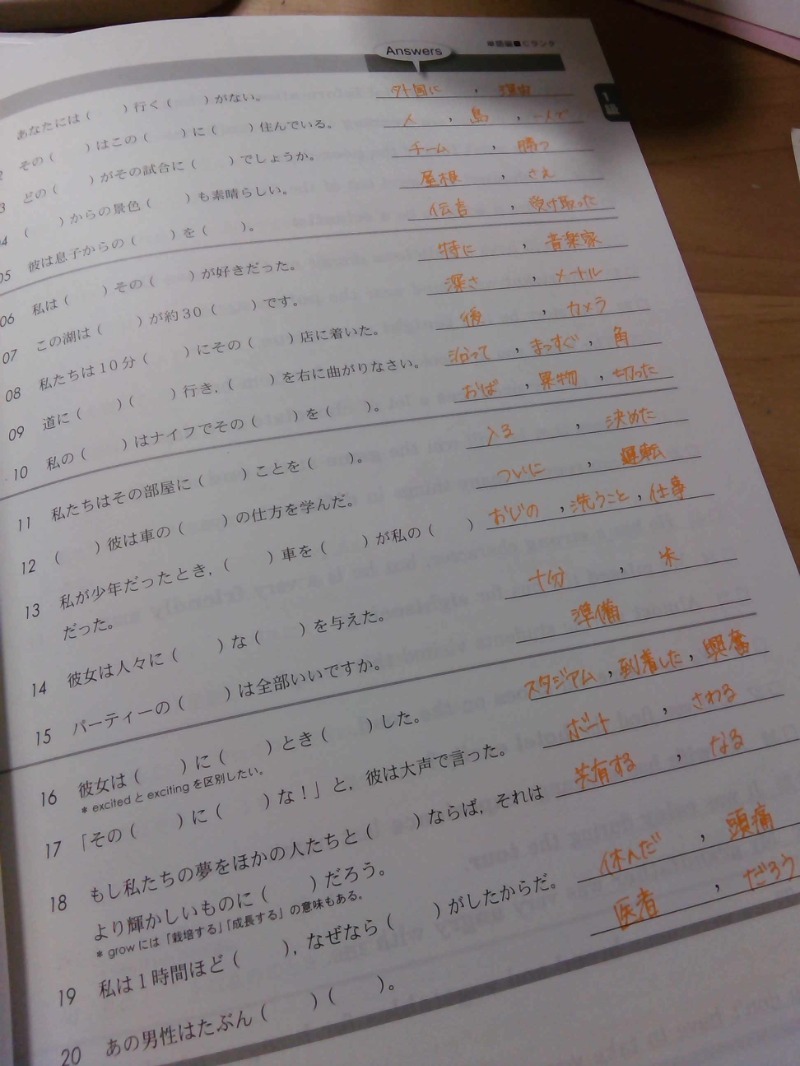 Answers
単語編 Cランク
1
あなたには（　　）行く（　　）がない。 外国に , 理由
2 その（　　）はこの（　　）に（　　）住んでいる。 人 , 島 , 一人で
3 どの（　　）がその試合に（　　）でしょうか。 チーム , 勝つ
04 （　　）からの景色（　　）も素晴らしい。 屋根 , さえ
05 彼は息子からの（　　）を（　　）。 伝言 , 受け取った
06 私は（　　）その（　　）が好きだった。 特に , 音楽家
07 この湖は（　　）が約30（　　）です。 深さ , メートル
08 私たちは10分（　　）にその（　　）店に着いた。 後 , カメラ
09 道に（　　）（　　）行き，（　　）を右に曲がりなさい。 沿って , まっすぐ , 角
10 私の（　　）はナイフでその（　　）を（　　）。 おば , 果物 , 切った
11 私たちはその部屋に（　　）ことを（　　）。 入る , 決めた
12 （　　）彼は車の（　　）の仕方を学んだ。 ついに , 運転
13 私が少年だったとき，（　　）車を（　　）が私の（　　） おじの , 洗うこと , 仕事
だった。
14 彼女は人々に（　　）な（　　）を与えた。 十分 , 米
15 パーティーの（　　）は全部いいですか。 準備
16 彼女は（　　）に（　　）とき（　　）した。 スタジアム , 到着した , 興奮
* excited と exciting を区別したい。
17 「その（　　）に（　　）な！」と，彼は大声で言った。 ボート , さわる
18 もし私たちの夢をほかの人たちと（　　）ならば，それは 共有する , なる
より輝かしいものに（　　）だろう。
* grow には「栽培する」「成長する」の意味もある。
19 私は1時間ほど（　　），なぜなら（　　）がしたからだ。 休んだ , 頭痛
20 あの男性はたぶん（　　）（　　）。 医者 , だろう